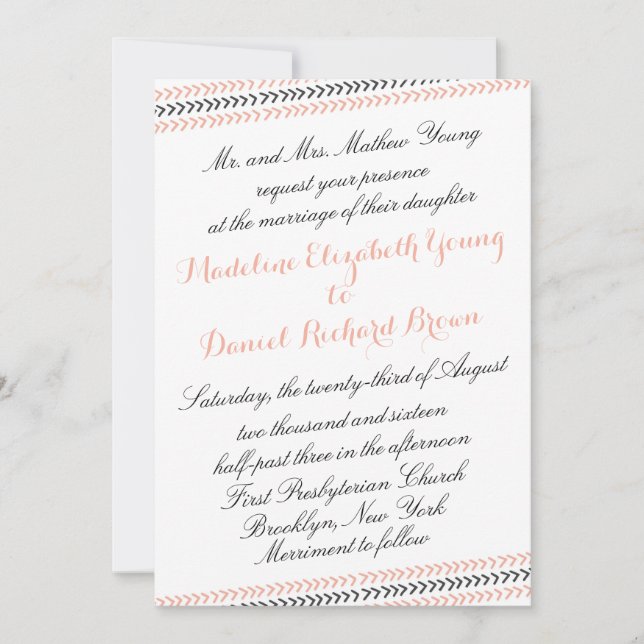 Mr. and Mrs. Mathew Young
request your presence
at the marriage of their daughter
Madeline Elizabeth Young
to
Daniel Richard Brown
Saturday, the twenty-third of August
two thousand and sixteen
half-past three in the afternoon
First Presbyterian Church
Brooklyn, New York
Merriment to follow